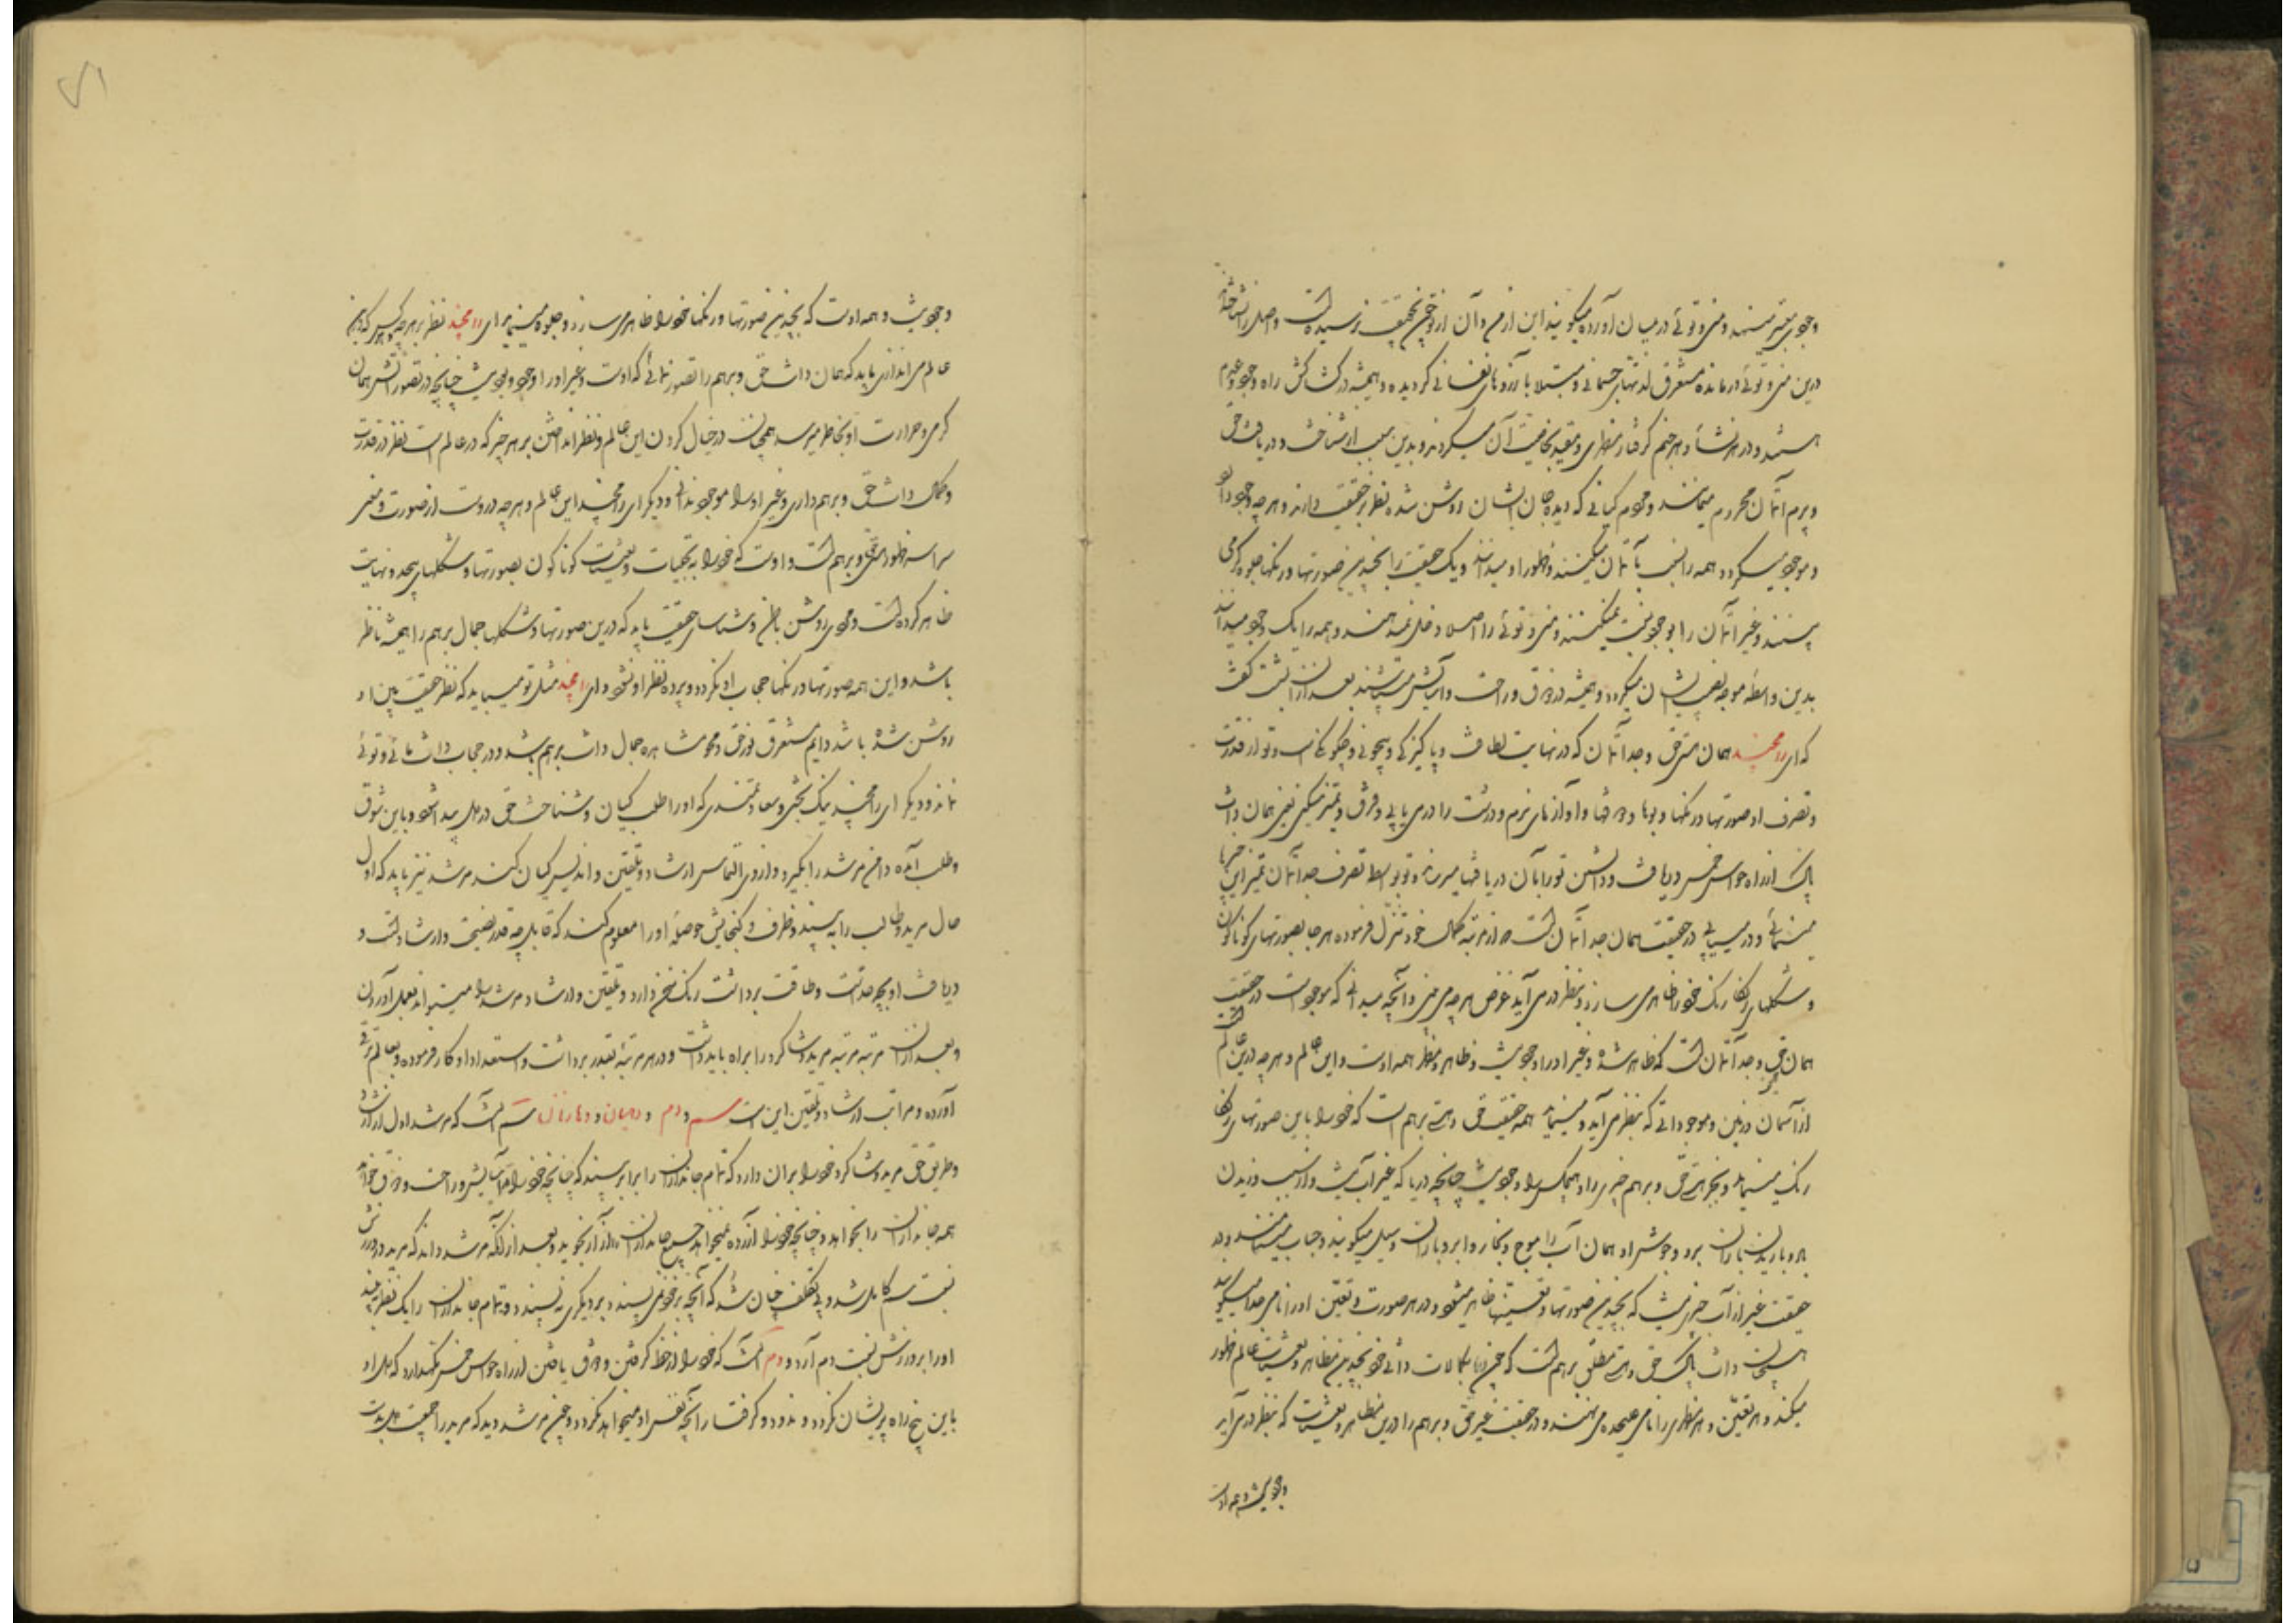 وجودی معین مینهند و منی و توئی در میان آورده میگویند این از من و آن از تو چون بحقیقت نرسیده است و اصل را نشناخته
درین منی و توئی درمانده مستغرق لذتهای جسمانی و مبتلا بآرزوهای نفسانی گردیده و همیشه در کشاکش راه وجود و عدم
هستند و در هر نشأه و هر جنم گرفتار مظهری و مقید بخاصیت آن میگردند و بدین سبب از شناخت و دریافت حق
و پرم آتمان محروم میمانند و مردم گیانی که دیده جان ایشان روشن شده نظر بر حقیقت دارند و هر چه وجود دارد
و موجود میگردد همه را نسبت بآتمان میکنند و ظهور او میدانند و یک حقیقت را بچندین صورتها و رنگها جلوه گر می
بینند و غیر آتمان را بوجود نسبت نمیکنند و منی و توئی را اصلا دخل نمیدهند و همه را یک وجود میدانند
بدین واسطه موجد نصیب ایشان میگردد و همیشه در ذوق و راحت و آسایش میباشند بعد ازان بشست گفت
که ای رامچند همان هستی حق و چدآتمان که در نهایت لطافت و پاکیزگی و بیچونی و بیچگونگی است و تو از قدرت
و تصرف او صورتها و رنگها و بوها و ذوقها و آوازهای نرم و درشت را در می یابی و فرق و تمیز میکنی یعنی همان ذات
پاک از راه حواس خمسه دریافت و دانش تو را بآن دریافتها میرساند و تو بواسطه تصرف چدآتمان تمیز این چیزها
مینمائی و در مییابی در حقیقت همان چدآتمان است که از مرتبه کمال خود تنزل فرموده هر جا بصورتهای گوناگون
و شکلهای رنگارنگ خود را ظاهر می سازد و بنظر در می آید غرض هر چه می بینی و آنچه میدانی که موجود است در حقیقت
همان حق و چدآتمان است که ظاهر شده و غیر او را وجود نیست و ظاهر و مظهر همه اوست و این عالم و هر چه درین عالم است
از آسمان و زمین و موجوداتی که بنظر می آید و مینماید همه حقیقت حق و هستی برهم است که خود را باین صورتهای رنگا
رنگ مینماید و بجز هستی حق و برهم چیزی را و هیچکس را وجود نیست چنانچه دریا که غیر آب نیست و از سبب وزیدن
باد و باریدن باران برد و جوش او همان آب را موج و بخار و ابر و باران و سیل میگویند و حباب مینامند و در
حقیقت غیر از آب چیزی نیست که بچندین صورتها و تعینها ظاهر میشود و در هر صورت و تعین او را نامی جدا میگویند
همچنان ذات پاک حق و هستی مطلق برهم است که خود را بکمالات ذاتی خود بچندین مظاهر و تعینات عالم ظهور
میکند و هر تعین و هر مظهری را نامی علیحده می نهند و در حقیقت غیر حق و برهم را درین مظاهر و تعینات که بنظر در می آید
وجود نیست و همه اوست
وجود نیست و همه اوست که بچندین صورتها و رنگها خود را ظاهر می سازد و جلوه مینماید ای رامچند نظر بر هر چه و هر کس که درین
عالم می اندازی باید که همان ذات حق و برهم را تصور نمائی که اوست و غیر او را وجود و بود نیست چنانچه در تصور آتش همان
گرمی و حرارت او بخاطر میرسد همچنان در خیال کردن این عالم و نظر انداختن بر هر چیز که در عالم است نظر در قدرت
و کمال ذات حق و برهم داری و غیر او را موجود ندانی و دیگر ای رامچند این عالم و هر چه دروست از صورت و معنی
سراسر ظهور حق و برهم است و اوست که خود را به تجلیات و تعینات گوناگون بصورتها و شکلهای بیحد و نهایت
ظاهر کرده است و مرد روشن باطن و شناسای حقیقت باید که درین صورتها و شکلها جمال برهم را همیشه ناظر
باشد و این همه صورتها و رنگها حجاب او نگردد و پرده نظر او نشود و ای رامچند مثل تو میباید که نظر حقیقت بین او
روشن شده باشد دایم مستغرق نور حق و محو مشاهده جمال ذات برهم باشد و در حجاب ذات مائی و توئی
نماند و دیگر ای رامچند نیک بختی و سعادتمندی که او را طلب گیان و شناخت حق در دل پیدا شود و باین شوق
و طلب آمده دامن مرشد را بگیرد و از وی التماس ارشاد و تلقین و اپدیس گیان کند مرشد نیز باید که اول
حال مرید و طالب را به بیند و ظرف و گنجایش حوصله او را معلوم کند که قابل چه قدر نصیحت و ارشاد است و
دریافت او بچه حد است و طاقت برداشت رنگ سخن دارد و تلقین و ارشاد مرشد را میتواند بعمل آوردن
و بعد ازان مرتبه مرتبه مرید و شاگرد را براه باید داشت و در هر مرتبه بقدر برداشت و استعداد او کار فرموده بعالم ترقی
آورده و مراتب ارشاد و تلقین این است سم و دم و دهیان و دهارنان سم آنست که مرشد اول از ارشاد
و طریق حق مرید و شاگرد خود را بران دارد که تمام جانداران را برابر بیند که چنانچه خود را آسایش و راحت و ذوق خواهد
همه جانداران را بخواهد و چنانچه خود را آزرده نمیخواهد هیچ جانداران را آزار نجوید و بعد از آنکه مرشد داند که مرید در ورزش
نسبت سم کامل شد و بی تکلف چنان شد که آنچه بر خود می پسندد بر دیگری پسندد و تمام جانداران را یک نظر بیند
او را بورزش نسبت دم آرد و دم آنست که خود را از حظ گرفتن و ذوق یافتن از راه حواس خمسه نگهدارد که دل او
باین پنج راه پریشان نگردد و ندود و گرفتار آنچه نفس او میخواهد نگردد و چون مرشد دید که مرید را جمعیت دل بدست